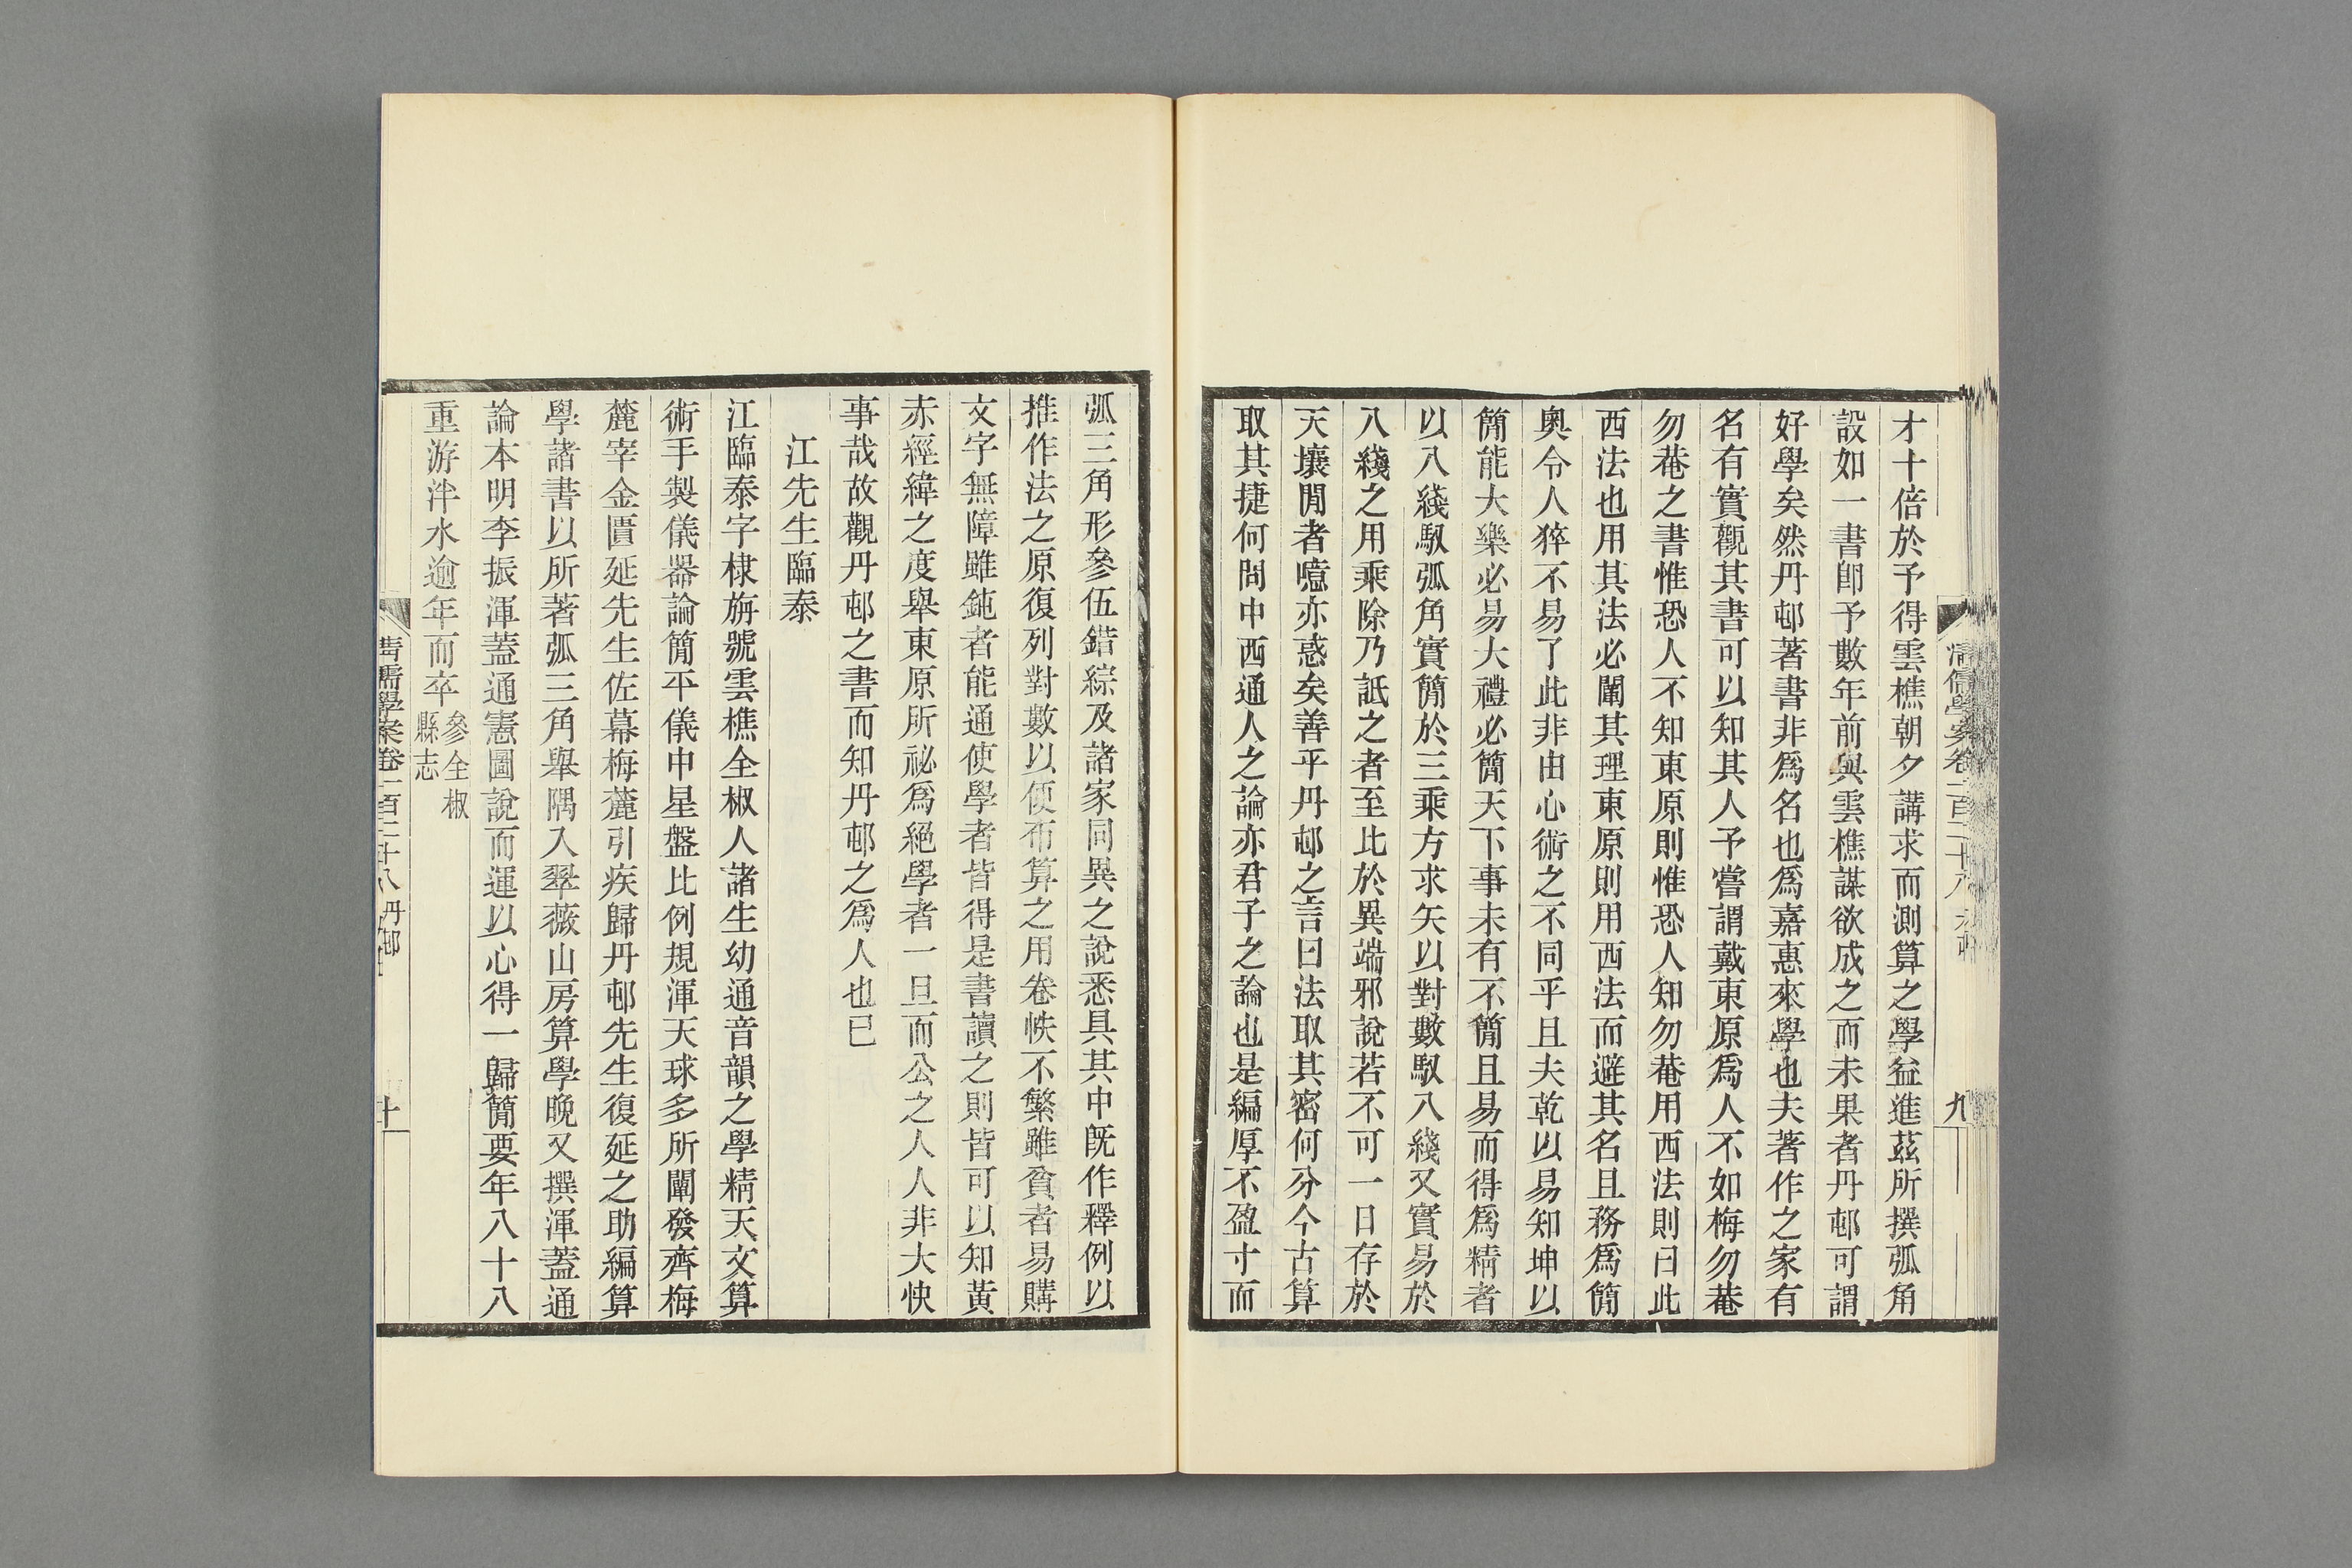 才十倍於予得雲樵朝夕講求而測算之學益進茲所撰弧角
設如一書卽予數年前與雲樵謀欲成之而未果者丹邨可謂
好學矣然丹邨著書非爲名也爲嘉惠來學也夫著作之家有
名有實觀其書可以知其人予嘗謂戴東原爲人不如梅勿菴
勿菴之書惟恐人不知東原則惟恐人知勿菴用西法則曰此
西法也用其法必闡其理東原則用西法而避其名且務爲簡
奧令人猝不易了此非由心術之不同乎且夫乾以易知坤以
簡能大樂必易大禮必簡天下事未有不簡且易而得爲精者
以八綫馭弧角實簡於三乘方求矢以對數馭八綫又實易於
八綫之用乘除乃詆之者至比於異端邪說若不可一日存於
天壤閒者噫亦惑矣善乎丹邨之言曰法取其密何分今古算
取其捷何問中西通人之論亦君子之論也是編厚不盈寸而
清儒學案卷一百二十八
九
弧三角形參伍錯綜及諸家同異之說悉具其中旣作釋例以
推作法之原復列對數以便布算之用卷帙不繁雖貧者易購
文字無障雖鈍者能通使學者皆得是書讀之則皆可以知黃
赤經緯之度舉東原所祕爲絕學者一旦而公之人人非大快
事哉故觀丹邨之書而知丹邨之爲人也已
江先生臨泰
江臨泰字棣旃號雲樵全椒人諸生幼通音韻之學精天文算
術手製儀器論簡平儀中星盤比例規渾天球多所闡發齊梅
麓宰金匱延先生佐幕梅麓引疾歸丹邨先生復延之助編算
學諸書以所著弧三角舉隅入翠薇山房算學晚又撰渾蓋通
論本明李振渾蓋通憲圖說而運以心得一歸簡要年八十八
重游泮水逾年而卒參全椒
縣志
清儒學案卷一百二十八 丹邨
十